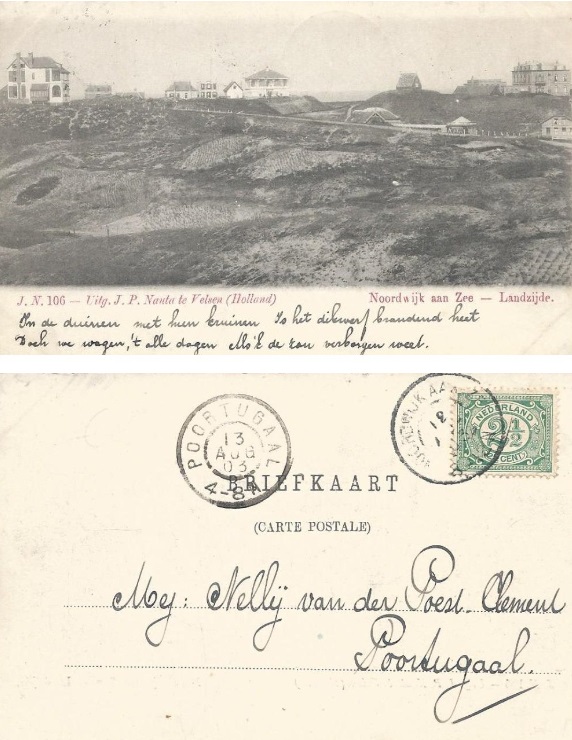 J. N. 106 — Uitg. J. P. Nanta te Velsen (Holland) Noordwijk aan Zee — Landzijde.
In de duinen met hun kruinen Is het dikwerf brandend heet
Doch we wagen, 't alle dagen Als 'k de zon verborgen weet.
POORTUGAAL
13
AUG
03
4-8
NOORDWIJK AA
NEDERLAND
2½
CENT
BRIEFKAART
(CARTE POSTALE)
Mej: Nellij van der Poest. Clement
Poortugaal.